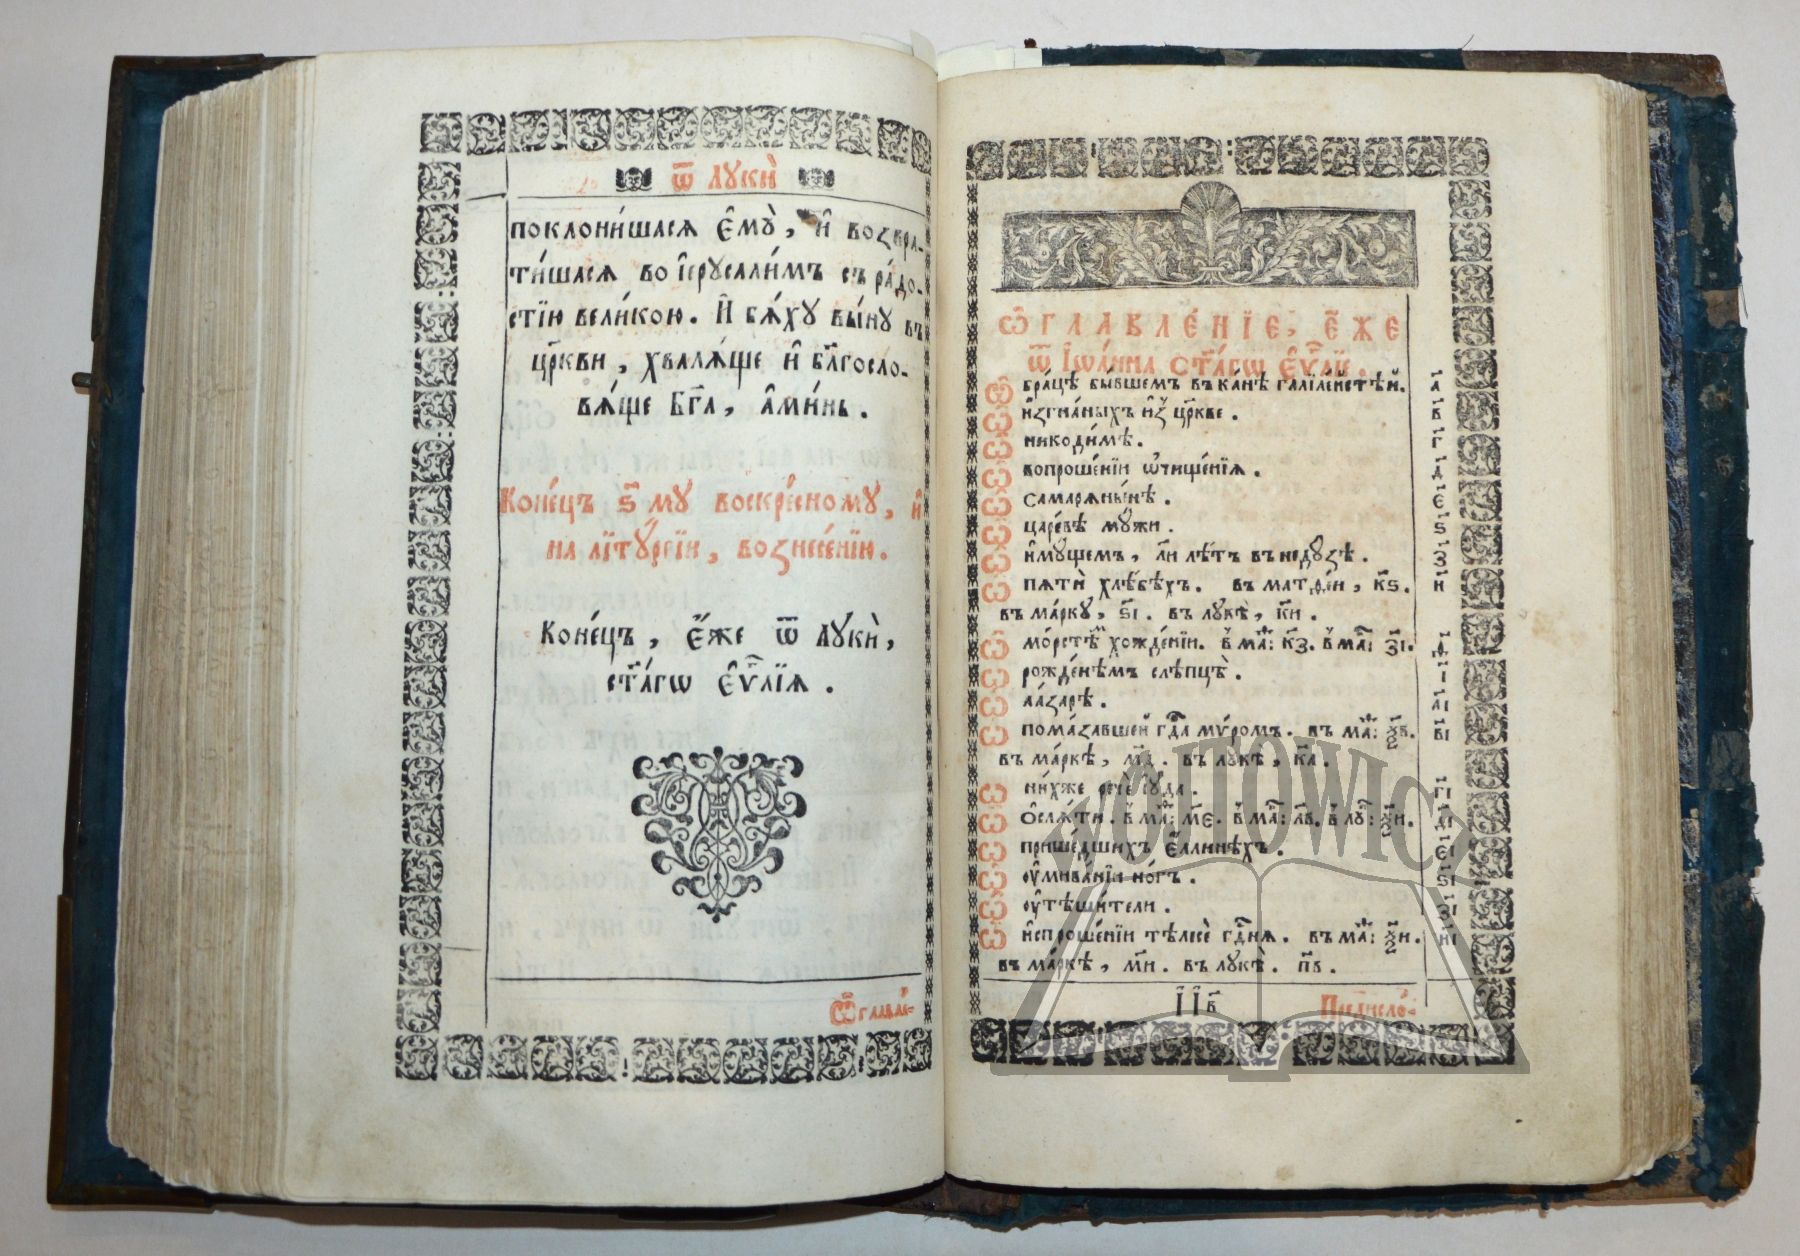 ѿ лꙋкѝ
поклони́шасѧ є҆мꙋ̀, и҆ возвра-
ти́шасѧ во і҆ерꙋсали́мъ съ ра́до-
стїю вели́кою. И҆ бѧ́хꙋ вы́нꙋ въ
цр҃кви, хвалѧ́ще и҆ бл҃госло-
вѧ́ще бг҃а, а҆ми́нь.
Коне́цъ ѕ҃ мꙋ воскре́сномꙋ, и҆
на лїтꙋргі́и, вознесе́нїю.
Коне́цъ, є҆́же ѿ лꙋкѝ,
ст҃а́гѡ є҆ѵⷢ҇лїѧ.
Ѡ҆главле́-
Ѡ҆главле́нїе, є҆́же
ѿ і҆ѡа́нна ст҃а́гѡ є҆ѵⷢ҇лїѧ.
Ѡ҆ бра́цѣ бы́вшемъ въ ка́нѣ галїле́йстѣй. а҃
Ѡ҆ и҆згна́ныхъ и҆з̾ цр҃кве. в҃
Ѡ҆ никоди́мѣ. г҃
Ѡ҆ вопроше́нїи ѡ҆чище́нїѧ. д҃
Ѡ҆ самарѧны́нѣ. є҃
Ѡ҆ царе́вѣ мꙋ́жи. ѕ҃
Ѡ҆ и҆мꙋ́щемъ, л҃и лѣ́тъ въ недꙋ́зѣ. з҃
Ѡ҆ пѧтѝ хлѣ́бѣхъ. въ матѳе́и, к҃ѕ. и҃
въ ма́ркꙋ, ѕ҃і. въ лꙋкѣ̀, к҃и.
Ѡ҆ мо́рстѣⷨ хожде́нїи. в̾ маⷴ: к҃з. в̾ маⷬ: з҃і. ѳ҃
Ѡ҆ рожде́нѣмъ слѣпцѣ̀. і҃
Ѡ҆ ла́зарѣ. а҃і
Ѡ҆ пома́завшей гдⷭ҇а мѵ́ромъ. въ маⷴ: ѯ҃в. в҃і
въ ма́ркѣ, м҃д. въ лꙋкѣ̀, к҃а.
Ѡ҆ ни́хже речѐ і҆ꙋ́да. г҃і
Ѡ҆ ѻ҆слѧ́ти. в̾ маⷴ: м҃є. в̾ маⷬ: л҃в. в̾ лꙋ: ѯ҃и. д҃і
Ѡ҆ прише́дшихъ є҆́ллинѣхъ. є҃і
Ѡ҆ ᲂу҆мыва́нїи но́гъ. ѕ҃і
Ѡ҆ ᲂу҆тѣ́шители. з҃і
Ѡ҆ и҆спроше́нїи тѣлесѐ гдⷭ҇нѧ. въ маⷴ: ѯ҃и. и҃і
въ ма́ркѣ, м҃и. въ лꙋкѣ̀. п҃в.
П҃П҃в
Предисло́-
WÓJTOWICZ